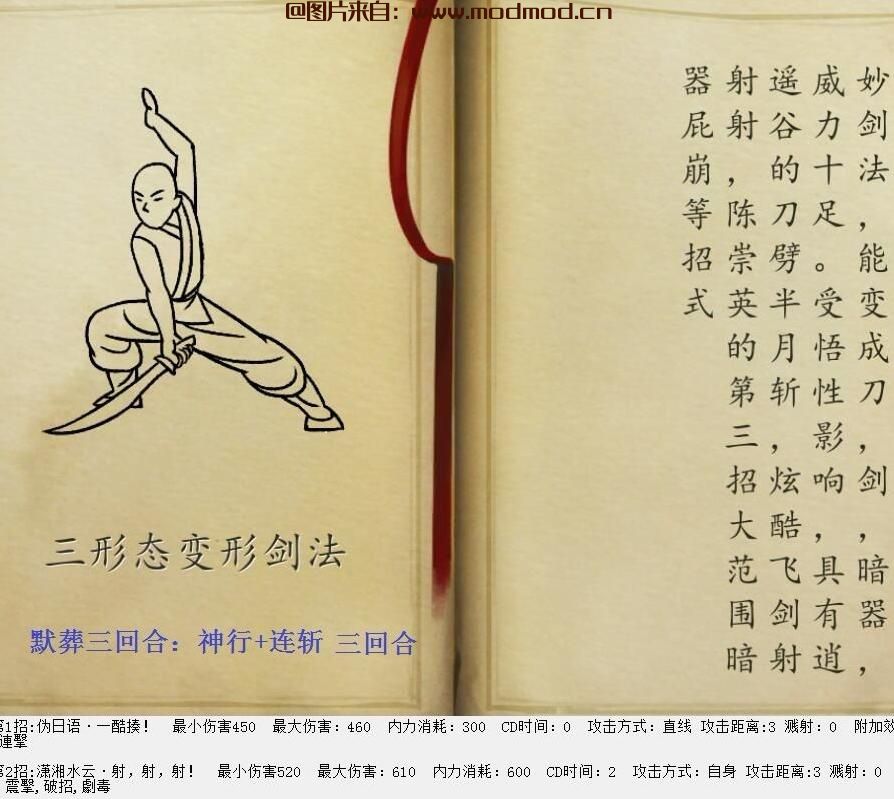 @图片来自：www.modmod.cn
妙剑法，能变成刀，剑，暗器，
威力十足。受悟性影响，具有逍
遥谷的刀劈半月斩，炫酷飞剑射
射射，陈崇英的第三招大范围暗
器屁崩等招式
三形态变形剑法
默葬三回合：神行+连斩 三回合
第1招:伪日语·一酷揍！ 最小伤害450 最大伤害：460 内力消耗：300 CD时间：0 攻击方式：直线 攻击距离:3 溅射：0 附加效
連擊
第2招:潇湘水云·射，射，射！ 最小伤害520 最大伤害：610 内力消耗：600 CD时间：2 攻击方式：自身 攻击距离:3 溅射：0
震擊,破招,劇毒